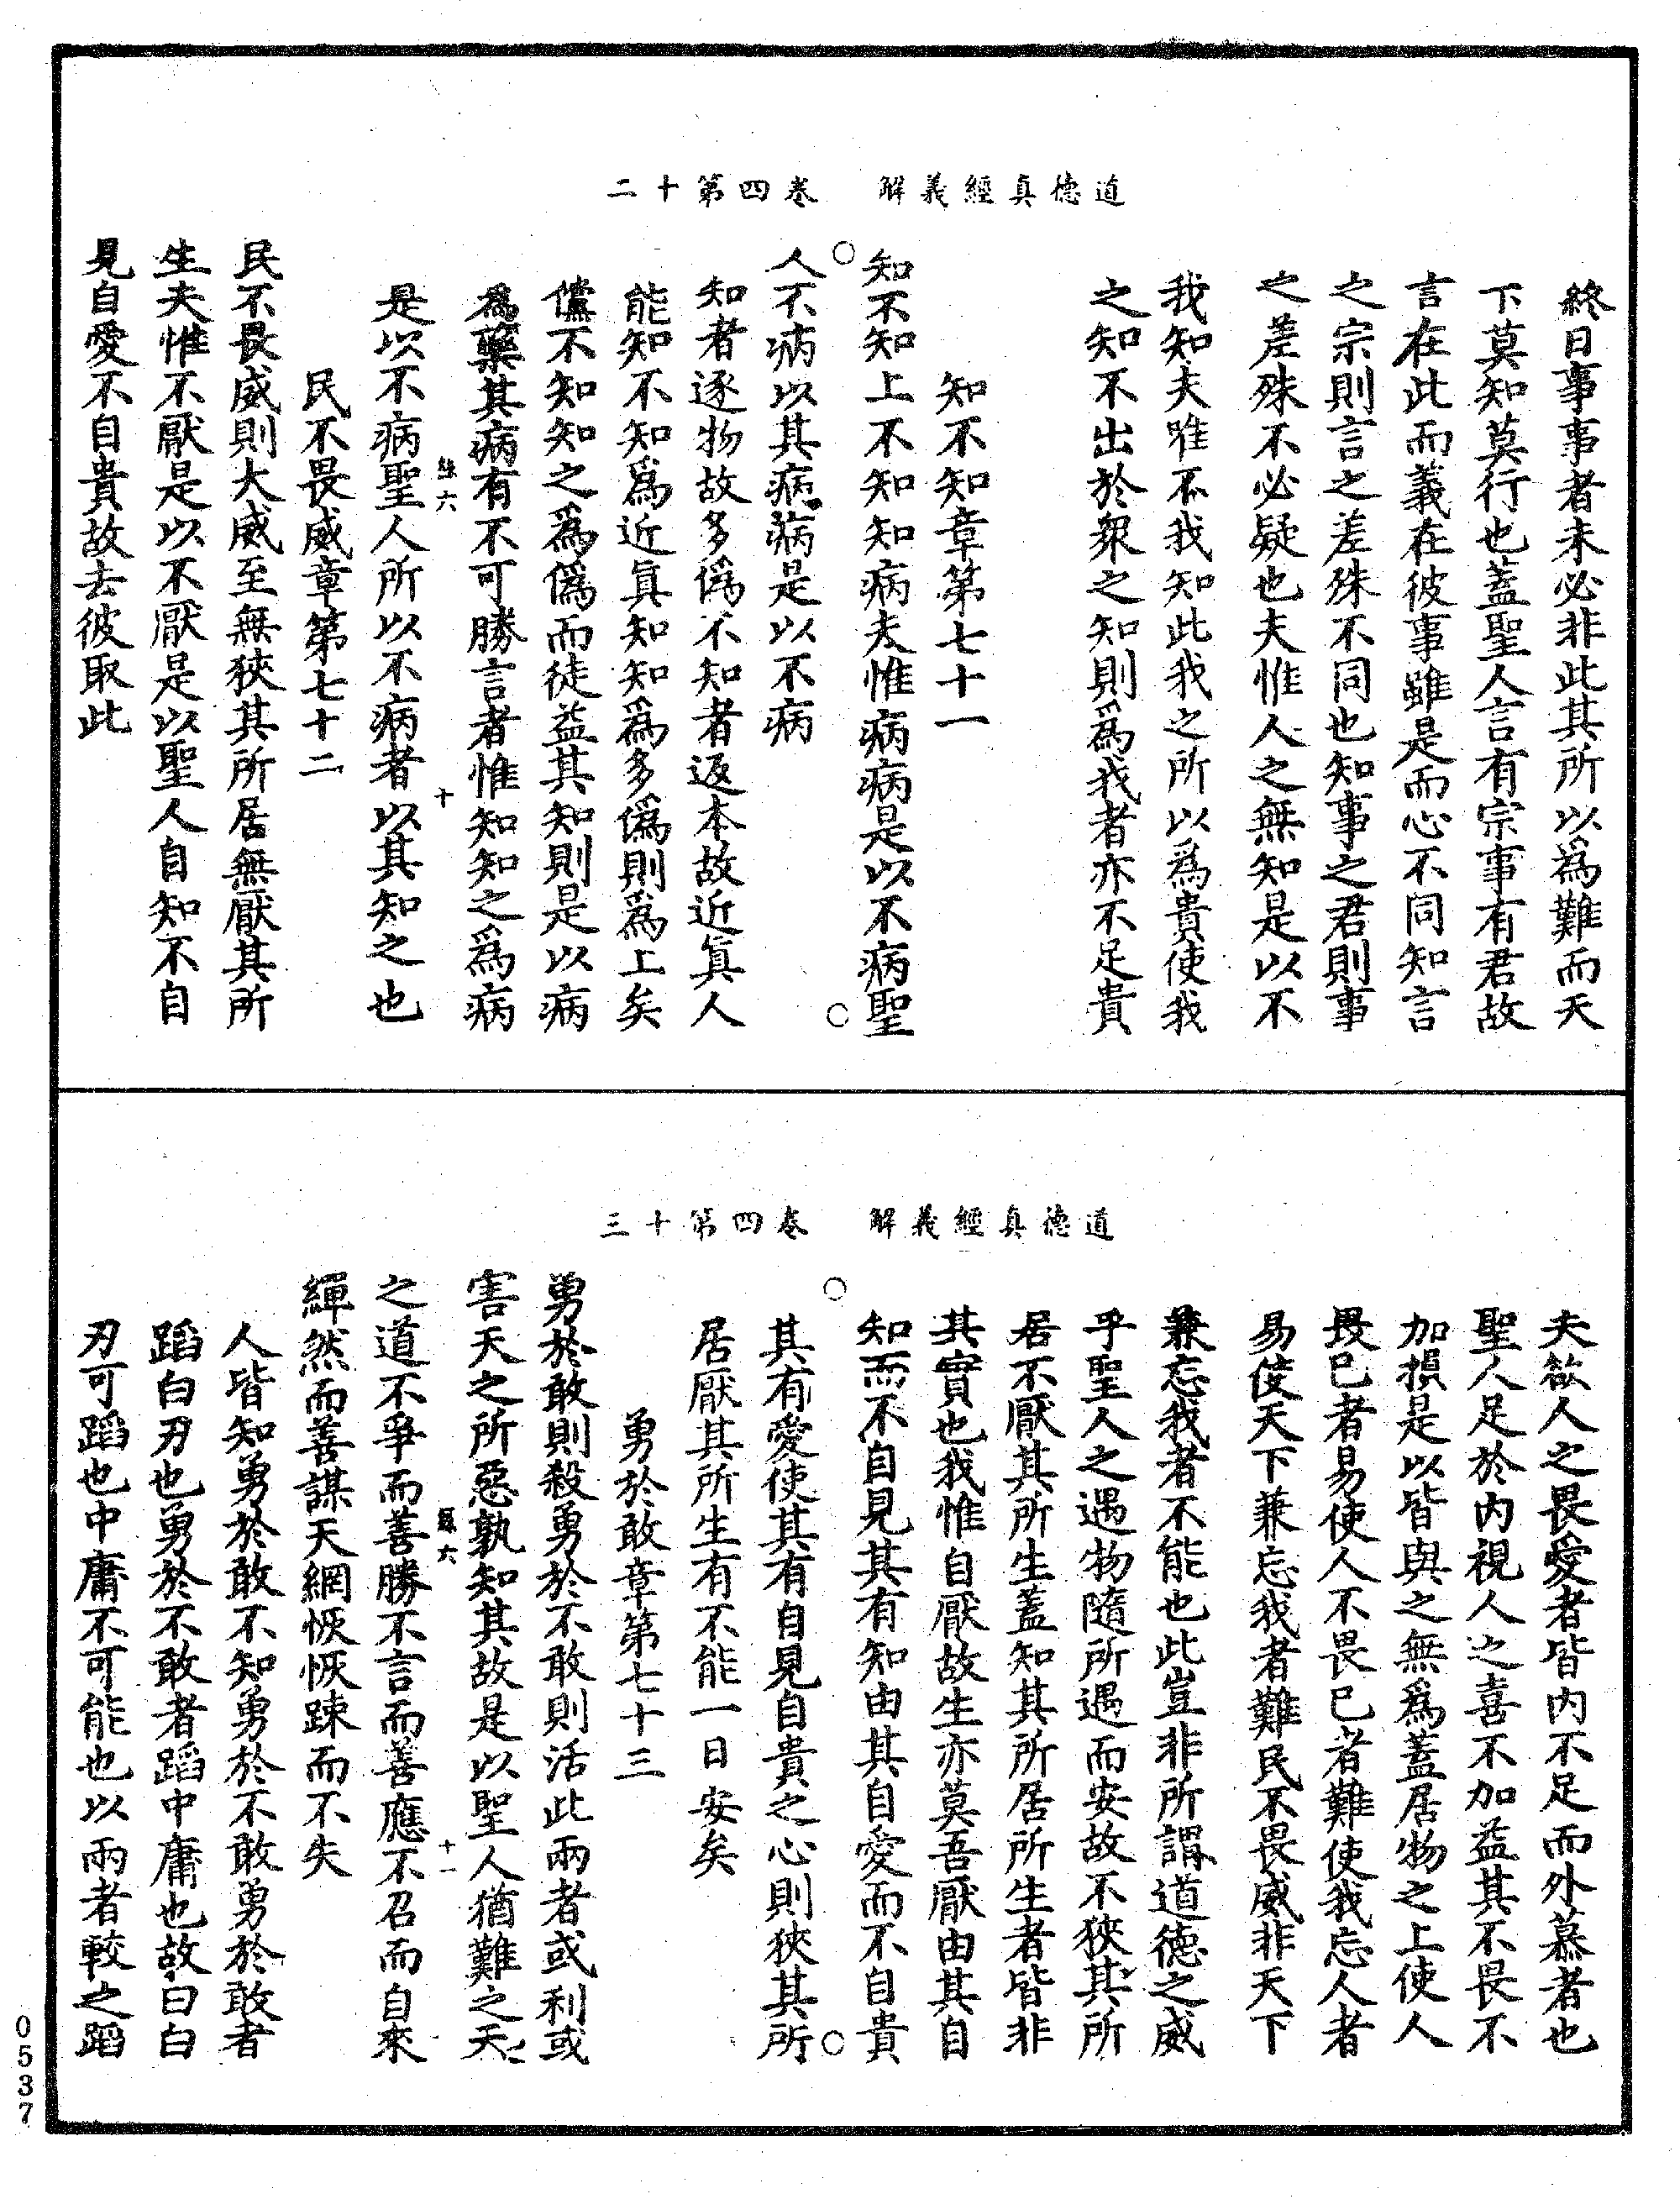 道德真經義解　卷四第十二
終日事事者未必非此其所以為難而天
下莫知莫行也蓋聖人言有宗事有君故
言在此而義在彼事雖是而心不同知言
之宗則言之差殊不同也知事之君則事
之差殊不必疑也夫惟人之無知是以不
我知夫唯不我知此我之所以為貴使我
之知不出於衆之知則為我者亦不足貴
知不知章第七十一
知不知上不知知病夫惟病病是以不病聖
人不病以其病病是以不病
知者逐物故多偽不知者返本故近真人
能知不知為近真知知為多偽則為上矣
儻不知知之為偽而徒益其知則是以病
為藥其病有不可勝言者惟知知之為病
是以不病聖人所以不病者以其知之也
民不畏威章第七十二
民不畏威則大威至無狹其所居無厭其所
生夫惟不厭是以不厭是以聖人自知不自
見自愛不自貴故去彼取此
六
十
道德真經義解　卷四第十三
夫欲人之畏愛者皆内不足而外慕者也
聖人足於内視人之喜不加益其不畏不
加損是以皆與之無為蓋居物之上使人
畏已者易使人不畏已者難使我忘人者
易使天下兼忘我者難民不畏威非天下
兼忘我者不能也此豈非所謂道德之威
乎聖人之遇物隨所遇而安故不狹其所
居不厭其所生蓋知其所居所生者皆非
其實也我惟自厭故生亦莫吾厭由其自
知而不自見其有知由其自愛而不自貴
其有愛使其有自見自貴之心則狹其所
居厭其所生有不能一日安矣
勇於敢章第七十三
勇於敢則殺勇於不敢則活此兩者或利或
害天之所惡孰知其故是以聖人猶難之天
之道不爭而善勝不言而善應不召而自來
繟然而善謀天網恢恢踈而不失
人皆知勇於敢不知勇於不敢勇於敢者
蹈白刃也勇於不敢者蹈中庸也故曰白
刃可蹈也中庸不可能也以兩者較之蹈
六
十一
0537